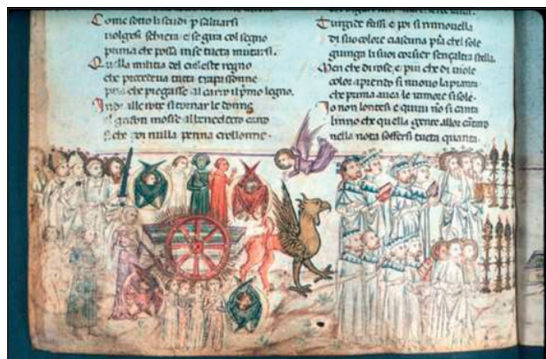 Come sotto li scudi p salvarsi
volgesi schiera e se gira col segno
prima che possa in se tucta mutarsi.
Quella militia del celeste regno
che precedeva tucta trapassonne
pria che piegasse al carro il pimo legno.
Indi alle rote si tornar le donne
el grifon mosse al benedecto carco
che poi nulla penna crollonne.
Turgide fassi e poi si rinovella
di suo colore ciascuna pria chel sole
giunga li suoi corsier stella.
Men che di rose, e piu che di viole
color aprendo si innovo la pianta
che prima avea le ramore si sole.
Io non lontesi e quinci no si canta
linno che quella gente allor
nella nota soffersi tucta quanta.